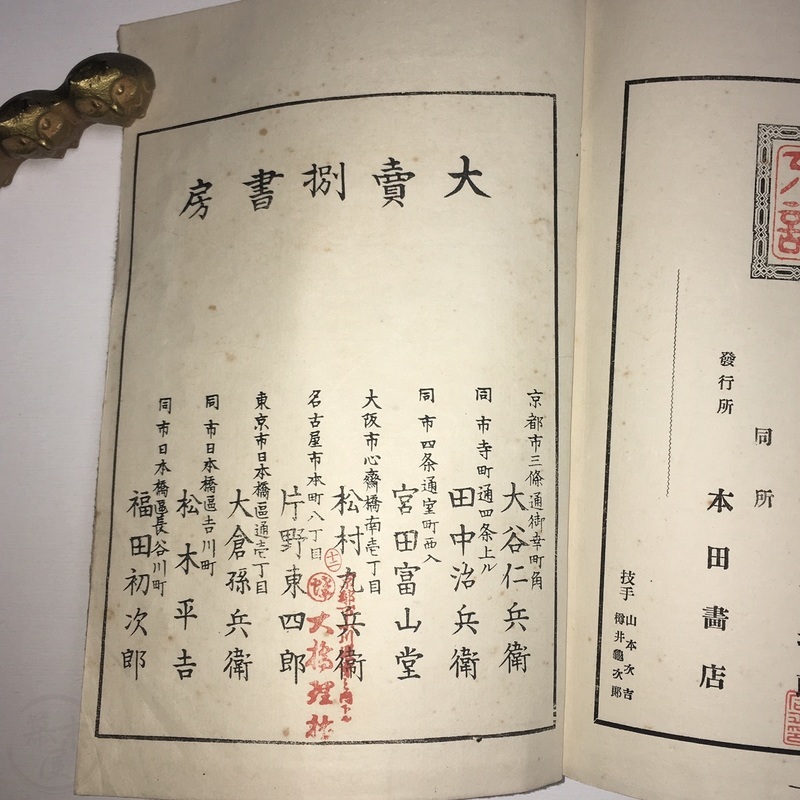 發行所
同所
本田畵店
技手
山本次吉
樽井龜次郎
大賣捌書房
京都市三條通御幸町角
大谷仁兵衛
同市寺町通四条上ル
田中治兵衛
同市四条通室町西入
宮田富山堂
大阪市心齋橋南壱丁目
松村九兵衛
名古屋市本町八丁目
片野東四郎
東京市日本橋區通壱丁目
大倉孫兵衛
同市日本橋區吉川町
松木平吉
同市日本橋區長谷川町
福田初次郎
大橋理